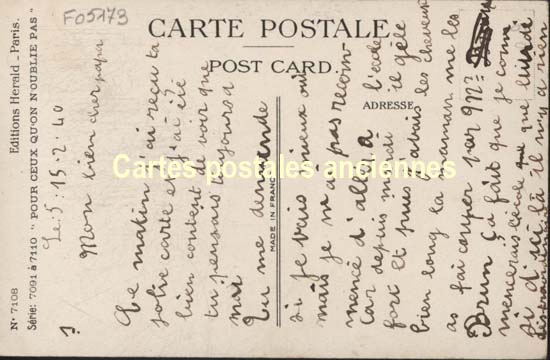 F05173
CARTE POSTALE
POST CARD.
ADRESSE
MADE IN FRANCE
Editions Herald - Paris.
N° 7108 Série: 7091 à 7110 " POUR CEUX QU'ON N'OUBLIE PAS "
Cartes postales anciennes
Le 15.2.40
Mon bien cher papa
Ce matin j'ai reçu ta
jolie carte et j'ai été
bien content de voir que
tu pensais toujours a
moi
Tu me demande
si je vais mieux oui
mais je n'ai pas recom
mencé d'aller a l'école
car depuis mardi il gèle
fort et puis j'avais les cheveux
bien long la maman me les
as fai couper par Mr
Brun ça fait que je com
mencerais que lundi
si d'ici là il n'y a rien